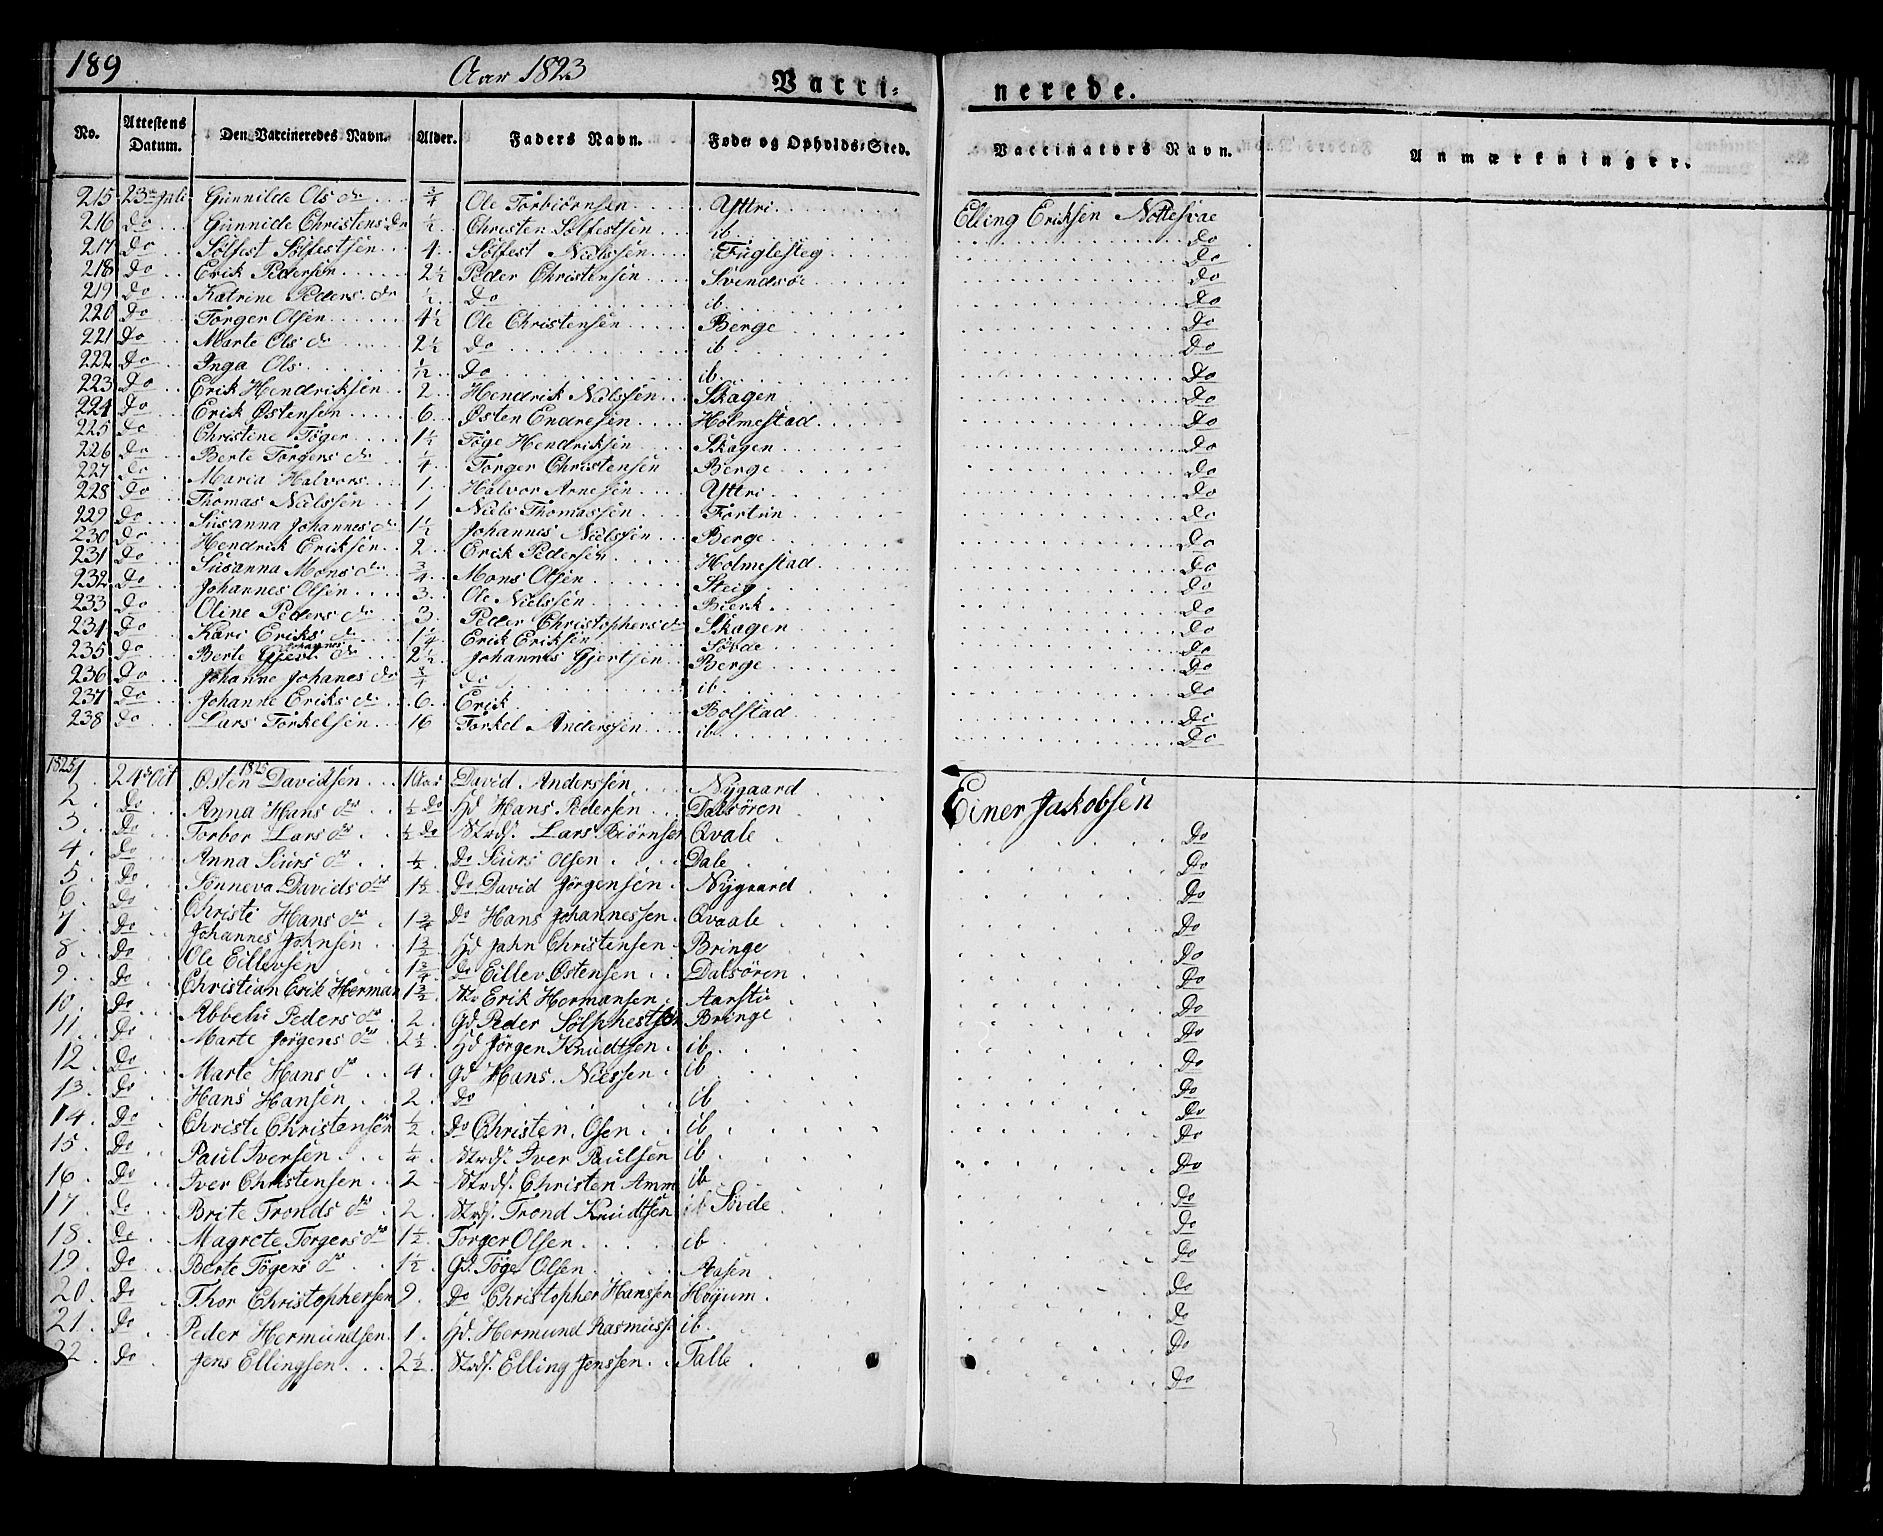 189 Aar 1823 Vacci= nerede.
No. Attestens Datum. Den Vaccineredes Navn. Alder. Faders Navn. Føde- og Opholds-Sted. Vaccinators Navn. Anmærkninger.
215 23de Juli Gunnilde Ols dr 3/4 Ole Torbiørnsen Yttri Elling Eriksen Nottesvae
216 Do Gunnide Christens dr 1/2 Christen Sølfestsen ib. Do
217 Do Sølfest Sølfestsen 4 Sølfest Nielssen Fuglesteg Do
218 Do Erik Pedersen 2 1/2 Peder Christensen Svendsøe Do
219 Do Katrine Peders dr 1/2 Do ib. Do
220 Do Torger Olsen 4 1/2 Ole Christensen Berge Do
221 Do Marte Ols dr 2 1/2 Do ib. Do
222 Do Inga Ols 1/2 Do ib. Do
223 Do Erik Hendriksen 2 Hendrik Nielssen Skagen Do
224 Do Erik Østensen 6 Østen Endresen Holmestad Do
225 Do Christine Tøger 1 1/2 Tøge Hendriksen Skagen Do
226 Do Berte Torgers dr 1/4 Torger Christensen Berge Do
227 Do Maria Halvors 1 Halvor Arnesen Yttri Do
228 Do Thomas Nielssen 1 Niels Thomassen Fortun Do
229 Do Susanna Johannes dr 1 1/2 Johannes Nielssen Berge Do
230 Do Hendrik Eriksen 2 Erik Pedersen Holmestad Do
231 Do Susanna Mons dr 3/4 Mons Olsen Steig Do
232 Do Johannes Olsen 3 Ole Nielssen Bierk Do
233 Do Oline Peders dr 3 Peder Christophers dr Skagen Do
234 Do Kari Eriks dr 1 1/4 Erik Eriksen Søvde Do
235 Do Berte Johannes dr 2 1/2 Johannes Gjertsen Berge Do
236 Do Johanne Johanes dr 3/4 Do ib. Do
237 Do Johanne Eriks dr 6 Erik Bolstad Do
238 Do Lars Torkelsen 16 Torkel Anderssen ib. Do
1825
1825
1. 24de Oct Østen Davidsen 1 Aar David Anderssen Nygaard Einer Jakobsen
2. Do Anna Hans dr 1/2 Do Hd Hans Pedersen Dalsøren Do
3. Do Torbor Lars dr 1/2 Do Strds. Lars Biørnsen Qvale Do
4. Do Anna Siurs dr 1/2 Do Siurs Olsen Dale Do
5. Do Sønneva Davids dr 1 1/2 Do David Jørgensen Nygaard Do
6. Do Christi Hans dr 1 3/4 Do Hans Johannessen Qvaale Do
7. Do Johannes Johnsen 1 3/2 Hd John Christensen Bringe Do
8. Do Ole Eillevsen 1 3/4 Do Eillev Østensen Dalsøren Do
9. Do Christian Erik Herman 1 3/2 Erik Hermansen Aarstie Do
10. Do Abbelu Peders dr 2 Gd. Peder Sølphestsen Bringe Do
11. Do Marte Jørgens dr 2 1/2 Hd Jørgen Knudtsen ib Do
12 Do Marte Hans dr 4 Gd Hans Nielssen ib Do
13. Do Hans Hansen 2 Do ib Do
14. Do Christi Christensen 1/2 Do Christen Osen ib Do
15. Do Paul Iversen 1/4 Strds. Iver Paulsen ib Do
16. Do Iver Christensen 2 Strds. Christen Amm ib Do
17. Do Brite Tronds dr 2 Strds. Trond Knudtsen Søvde Do
18. Do Magrete Torgers dr 1 1/2 Torger Olsen ib Do
19. Do Berte Tøgers dr 1 1/2 Gd. Tøge Olsen Aasen Do
20. Do Thor Christophersen 9 Do Christopher Hanssen Høyum Do
21. Do Peder Hermundsen 1. Hd. Hermund Rasmuss. ib Do
22. Do Jens Ellingsen 2 1/2 Strds. Elling Jenssen Talle Do